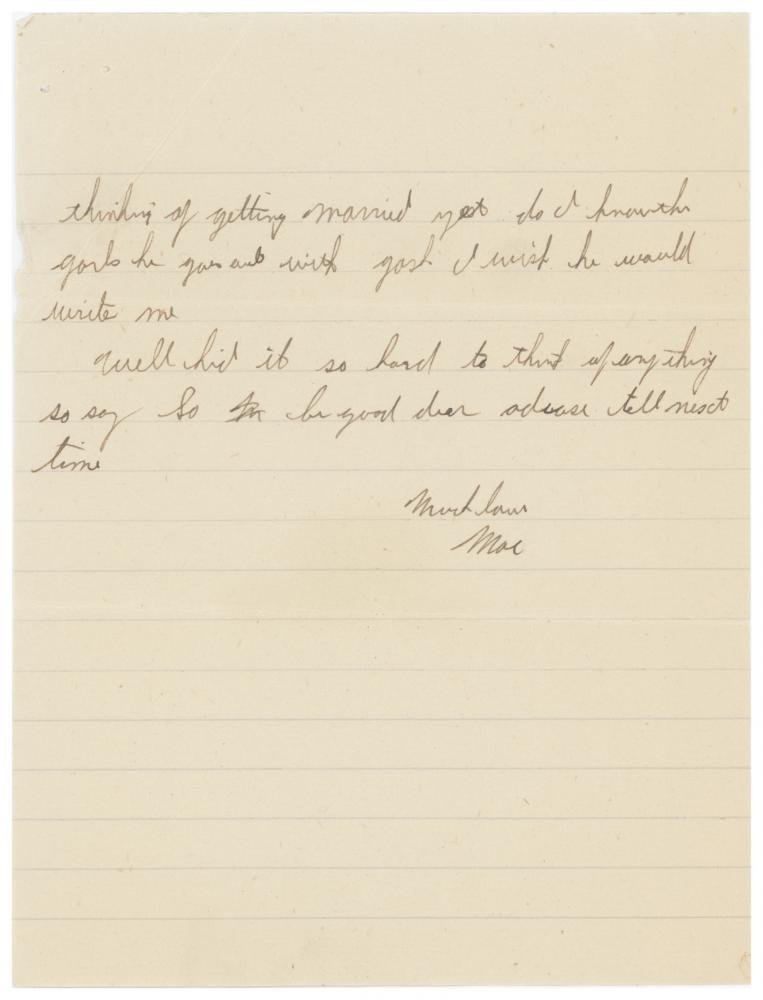 thinking of getting married yet do I know the
garls he goes out with gosh I wish he would
write me
Well kid it so hard to think of anything
so say So be good dear adease tell next
time
Much love
Mae